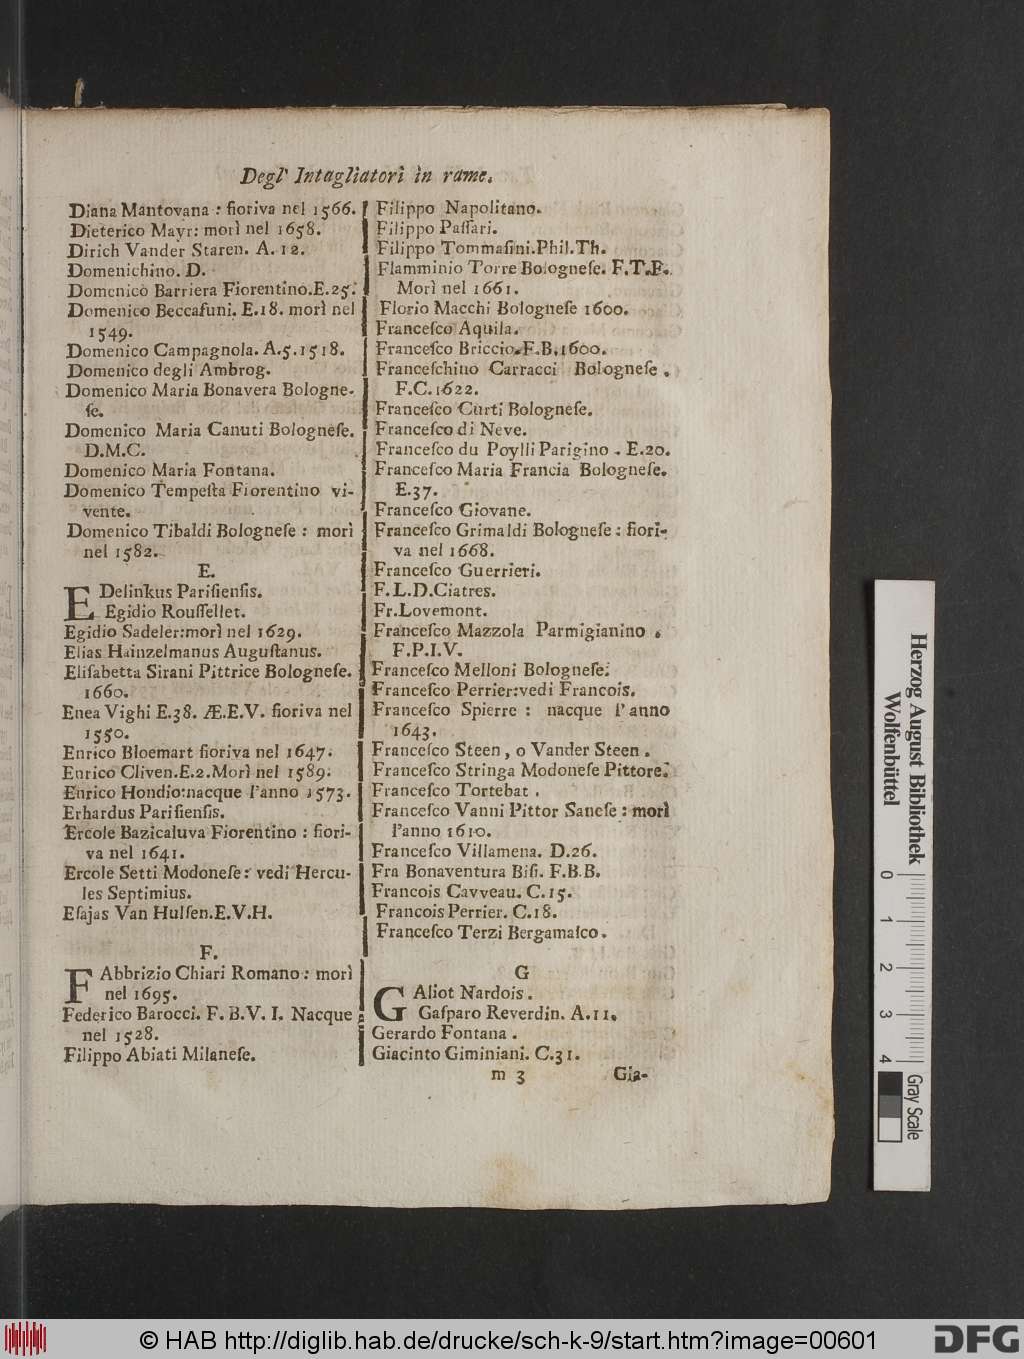 Degl' Intagliatori in rame.
Diana Mantovana : fioriva nel 1566.
Dieterico Mayr: morì nel 1658.
Dirich Vander Staren. A. 12.
Domenichino. D.
Domenico Barriera Fiorentino.E.25.
Domenico Beccafuni. E.18. morì nel
1549.
Domenico Campagnola. A.5.1518.
Domenico degli Ambrog.
Domenico Maria Bonavera Bologne-
ſe.
Domenico Maria Canuti Bologneſe.
D.M.C.
Domenico Maria Fontana.
Domenico Tempeſta Fiorentino vi-
vente.
Domenico Tibaldi Bologneſe : morì
nel 1582.
E.
EDelinkus Pariſienſis.
Egidio Rouſſellet.
Egidio Sadeler:morì nel 1629.
Elias Hainzelmanus Auguſtanus.
Eliſabetta Sirani Pittrice Bologneſe.
1660.
Enea Vighi E.38. Æ.E.V. fioriva nel
1550.
Enrico Bloemart fioriva nel 1647.
Enrico Cliven.E.2.Morì nel 1589.
Enrico Hondio:nacque l'anno 1573.
Erhardus Pariſienſis.
Ercole Bazicaluva Fiorentino : fiori-
va nel 1641.
Ercole Setti Modoneſe: vedi Hercu-
les Septimius.
Eſajas Van Hulſen.E.V.H.
F.
FAbbrizio Chiari Romano: morì
nel 1695.
Federico Barocci. F. B.V. I. Nacque
nel 1528.
Filippo Abiati Milaneſe.
Filippo Napolitano.
Filippo Paſſari.
Filippo Tommaſini.Phil.Th.
Flamminio Torre Bologneſe. F.T.F.
Morì nel 1661.
Florio Macchi Bologneſe 1600.
Franceſco Aquila.
Franceſco Briccio.F.B.1600.
Franceſchino Carracci Bologneſe .
F.C.1622.
Franceſco Curti Bologneſe.
Franceſco di Neve.
Franceſco du Poylli Parigino . E.20.
Franceſco Maria Francia Bologneſe.
E.37.
Franceſco Giovane.
Franceſco Grimaldi Bologneſe : fiori-
va nel 1668.
Franceſco Guerrieri.
F.L.D.Ciatres.
Fr.Lovemont.
Franceſco Mazzola Parmigianino .
F.P.I.V.
Franceſco Melloni Bologneſe.
Franceſco Perrier:vedi Francois.
Franceſco Spierre : nacque l'anno
1643.
Franceſco Steen , o Vander Steen .
Franceſco Stringa Modoneſe Pittore.
Franceſco Tortebat .
Franceſco Vanni Pittor Saneſe : morì
l'anno 1610.
Franceſco Villamena. D.26.
Fra Bonaventura Biſi. F.B.B.
Francois Cavveau. C.15.
Francois Perrier. C.18.
Franceſco Terzi Bergamaſco.
G
GAliot Nardois.
Gaſparo Reverdin. A.11.
Gerardo Fontana .
Giacinto Giminiani. C.31.
m 3 Gia-
Herzog August Bibliothek
Wolfenbüttel
0 1 2 3 4
Gray Scale
© HAB http://diglib.hab.de/drucke/sch-k-9/start.htm?image=00601
DFG